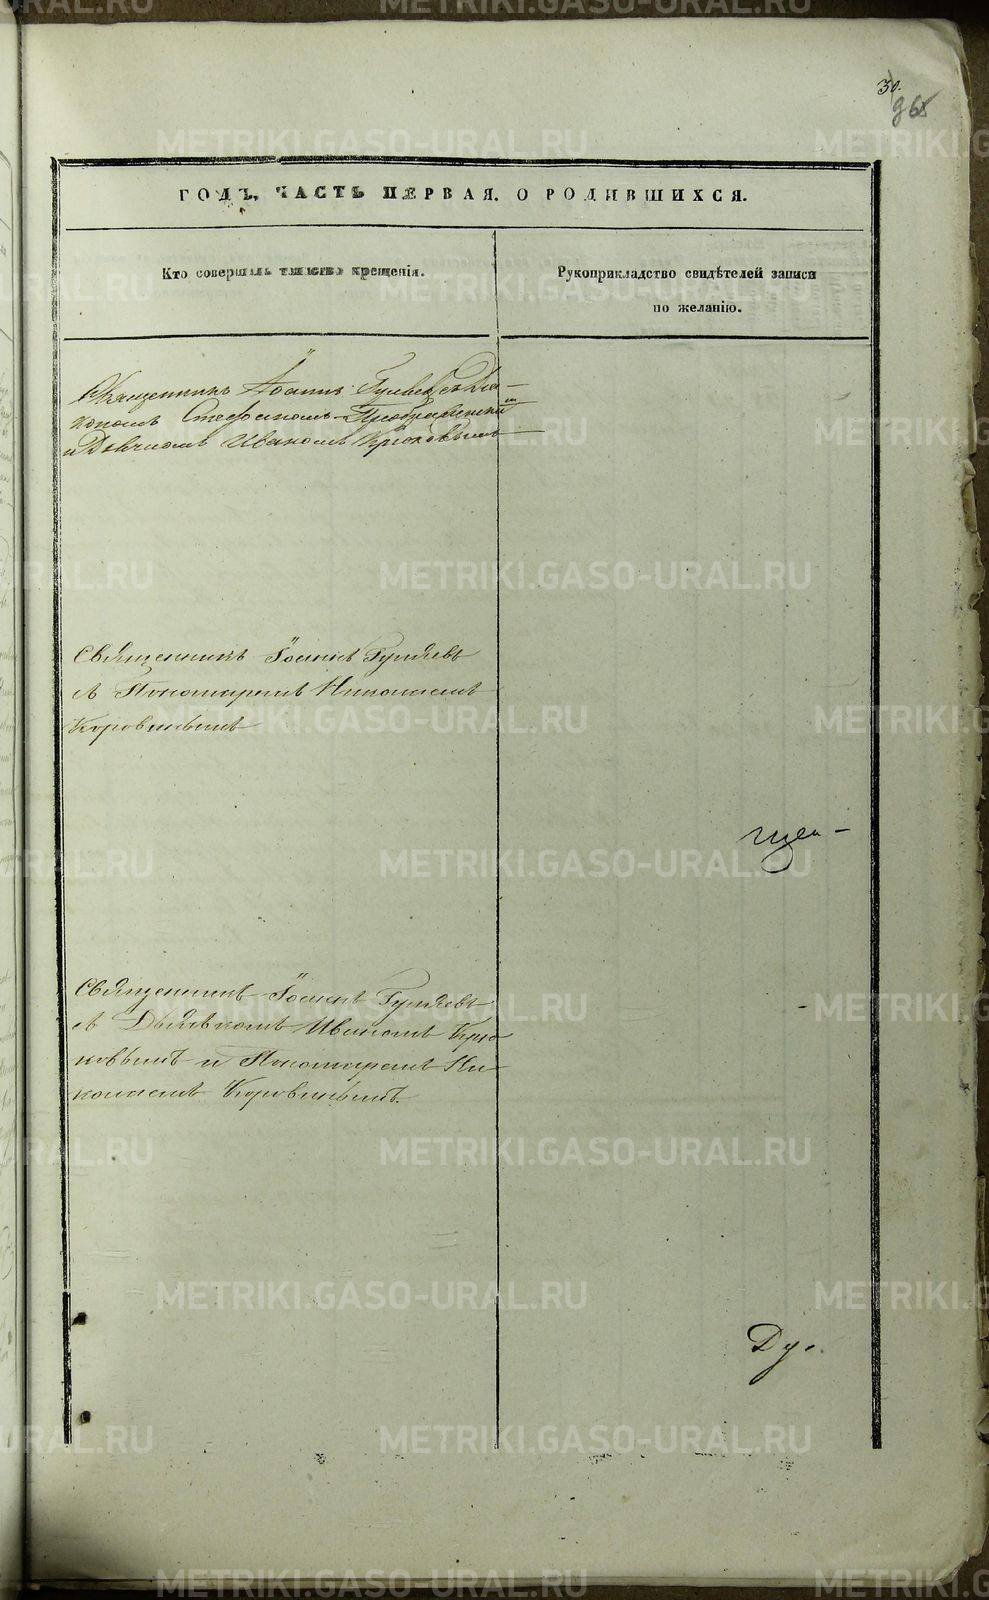 30.
ГОДЪ, ЧАСТЬ ПЕРВАЯ. О РОДИВШИХСЯ.
Кто совершалъ таинство крещенія.
Рукоприкладство свидѣтелей записи
по желанію.
Священникъ Іоаннъ Гуляевъ съ Діа-
кономъ Стефаномъ Преображенскимъ
и Дьячкомъ Иваномъ Крюковымъ
Священникъ Іоаннъ Гуляевъ
съ Пономаремъ Николаемъ
Коровинымъ
щен-
Священникъ Іоаннъ Гуляевъ
съ Дьячкомъ Иваномъ Крю-
ковымъ и Пономаремъ Ни-
колаемъ Коровинымъ.
Ду.
METRIKI.GASO-URAL.RU